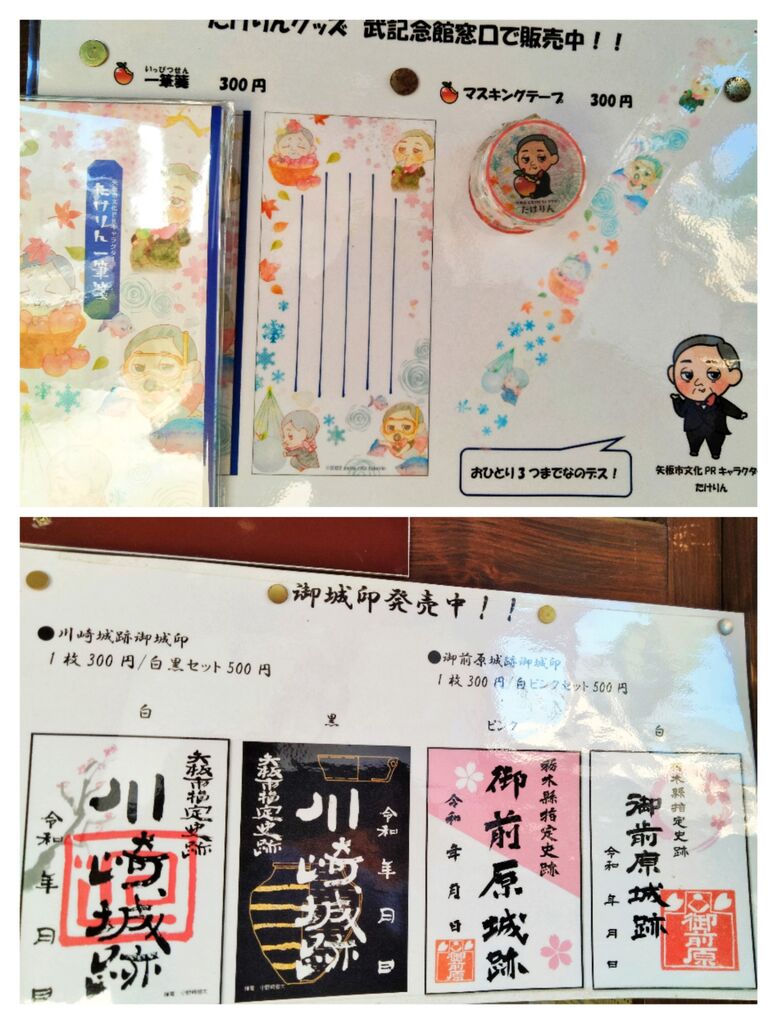 たけりんグッズ 武記念館窓口で販売中！！
いっぴつせん
一筆箋 300円
マスキングテープ 300円
矢板市文化PRキャラクター
たけりん一筆箋
たけりん
おひとり3つまでなのデス！
矢板市文化PRキャラクタ
たけりん
御城印発売中！！
●川崎城跡御城印
1枚300円/白黒セット500円
●御前原城跡御城印
1枚300円/白ピンクセット500円
白
黒
ピンク
白
矢板市指定史跡
川崎城跡
令和 年 月 日
矢板市指定史跡
川崎城跡
令和 年 月 日
栃木縣指定史跡
御前原城跡
令和 年 月 日
御前原
栃木縣指定史跡
御前原城跡
令和 年 月 日
御前原